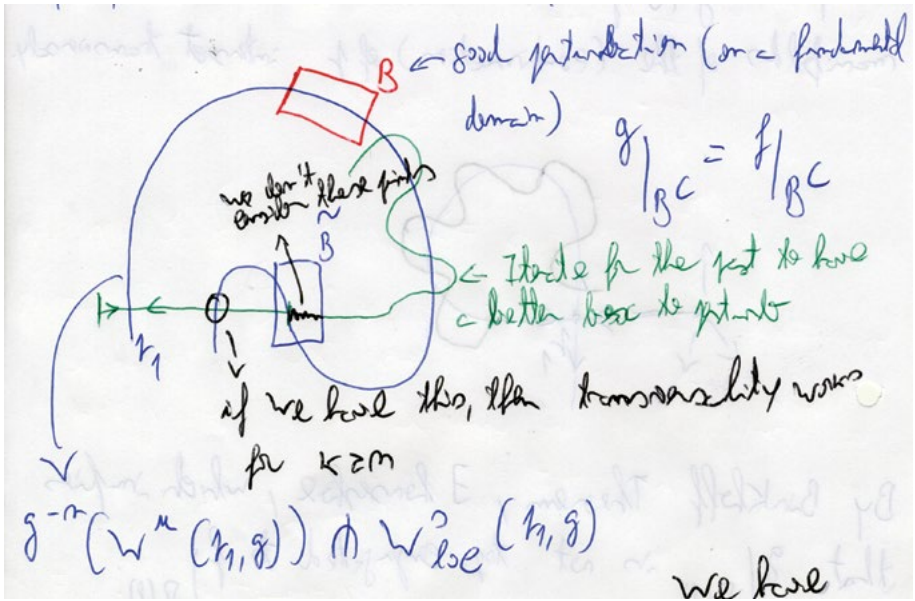 B ← good perturbation (on a fundamental
domain)
g|_{B^c} = f|_{B^c}
we don't
consider these points
B̃
← Iterate for the past to have
← better box to perturb
r_1
if we have this, then transversality works
for k≥n
g^{-n}(W^u(r_1,g)) ⋔ W^s_{loc}(r_1,g)
We have